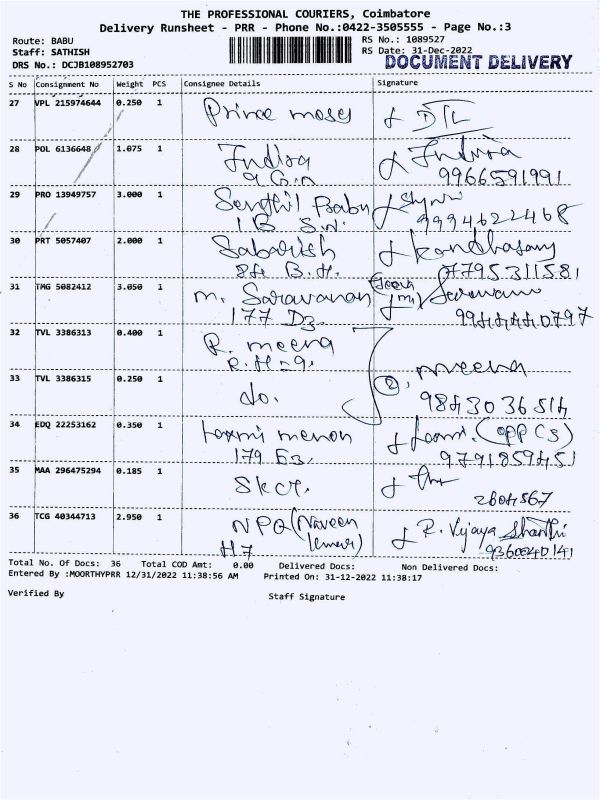 THE PROFESSIONAL COURIERS, Coimbatore
Delivery Runsheet - PRR - Phone No.:0422-3505555 - Page No.:3
Route: BABU RS No.: 1089527
Staff: SATHISH RS Date: 31-Dec-2022
DRS No.: DCJB108952703 DOCUMENT DELIVERY
S No Consignment No Weight PCS Consignee Details Signature
27 VPL 215974644 0.250 1 Prince moses
28 POL 6136648 1.075 1 Indira Indira
9 G.n 9966591991
29 PRO 13949757 3.000 1 Senthil Babu
1 B S.W. 9994622468
30 PRT 5057407 2.000 1 Sabarish Kandhasamy
8H B.H. 7795311581
31 TMG 5082412 3.050 1 m. Saravanan
177 D3 9944440797
32 TVL 3386313 0.400 1 R. meena
R.H=9.
33 TVL 3386315 0.250 1 do. meena
9843036514
34 EDQ 22253162 0.350 1 Laxmi menon Laxmi. (OPP CS)
179 E3. 9791859451
35 MAA 296475294 0.185 1 SKCT.
2604567
36 TCG 40344713 2.950 1 NPQ (Naveen R. Vijaya Shanthi
H7 Kumar) 9360240141
Total No. Of Docs: 36 Total COD Amt: 0.00 Delivered Docs: Non Delivered Docs:
Entered By :MOORTHYPRR 12/31/2022 11:38:56 AM Printed On: 31-12-2022 11:38:17
Verified By Staff Signature